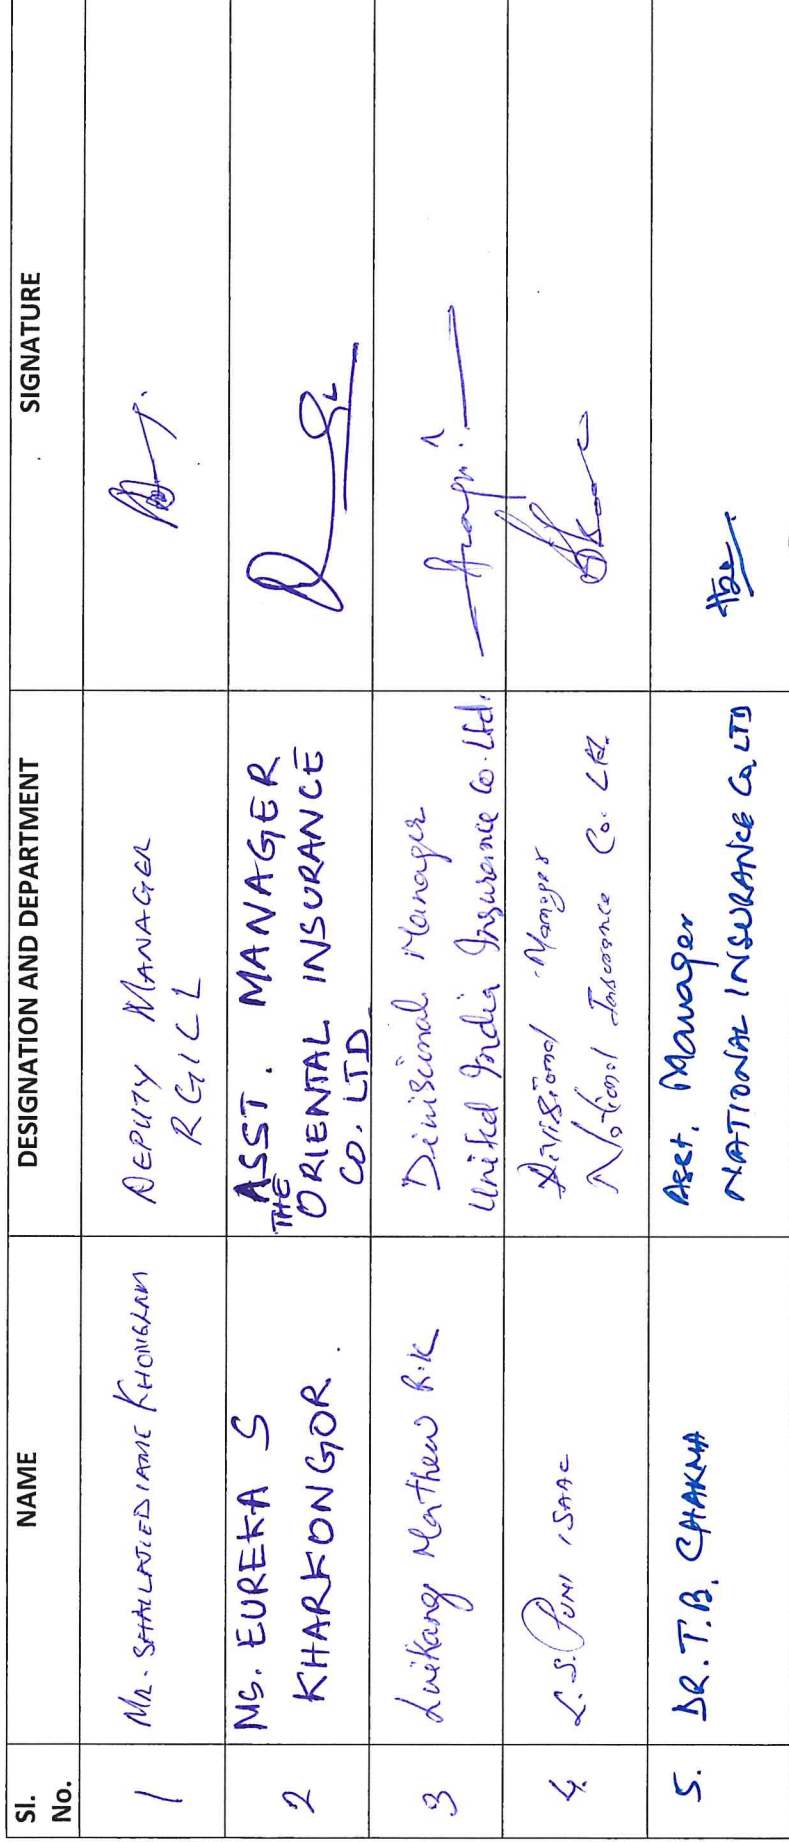 Sl.
No.
NAME
DESIGNATION AND DEPARTMENT
SIGNATURE
1
MR. KHONGLAM
DEPUTY MANAGER
RGICL
2
MS. EUREKA S
KHARKONGOR.
ASST. MANAGER
THE
ORIENTAL INSURANCE
CO. LTD
3
Luikang Mathew R.K
Divisional Manager
United India Insurance Co. Ltd.
4.
L.S. PUNI ISAAC
Divisional Manager
National Insurance Co. Ltd.
5.
DR. T.B. CHAKMA
Asst. Manager
NATIONAL INSURANCE Co. LTD